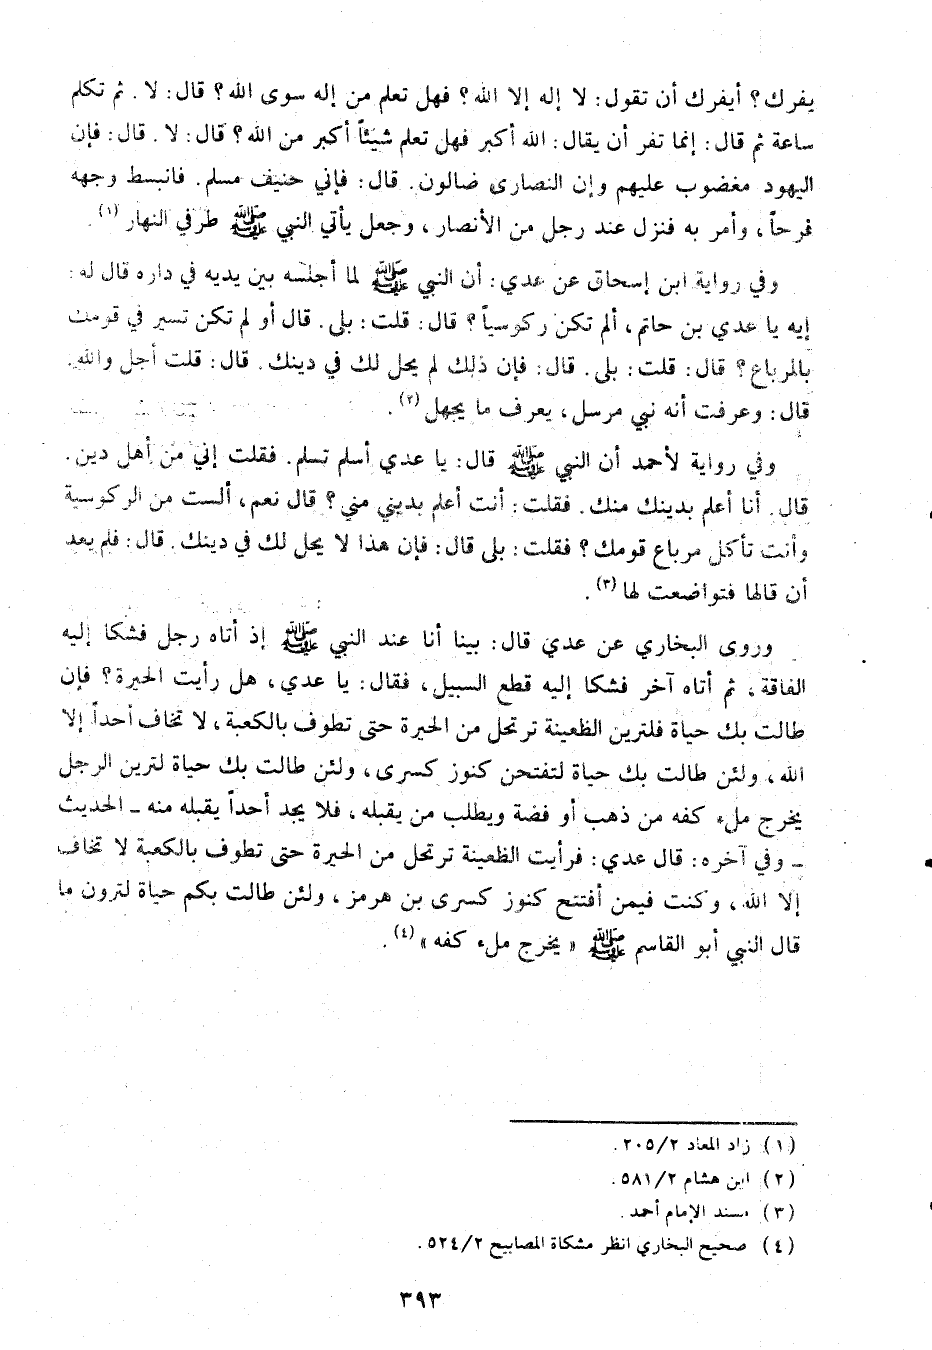 يفرك؟ أيفرك أن تقول: لا إله إلا الله؟ فهل تعلم من إله سوى الله؟ قال: لا. ثم تكلم
ساعة ثم قال: إنما تفر أن يقال: الله أكبر فهل تعلم شيئاً أكبر من الله؟ قال: لا. قال: فإن
اليهود مغضوب عليهم وإن النصارى ضالون. قال: فإني حنيف مسلم. فانبسط وجهه
فرحاً، وأمر به فنزل عند رجل من الأنصار، وجعل يأتي النبي ﷺ طرفي النهار (١).
وفي رواية ابن إسحاق عن عدي: أن النبي ﷺ لما أجلسه بين يديه في داره قال له:
إيه يا عدي بن حاتم، ألم تكن ركوسياً؟ قال: قلت: بلى. قال أو لم تكن تسير في قومك
بالمرباع؟ قال: قلت: بلى. قال: فإن ذلك لم يحل لك في دينك. قال: قلت أجل والله.
قال: وعرفت أنه نبي مرسل، يعرف ما يجهل (٢).
وفي رواية لأحمد أن النبي ﷺ قال: يا عدي أسلم تسلم. فقلت إني من أهل دين.
قال. أنا أعلم بدينك منك. فقلت: أنت أعلم بديني مني؟ قال نعم، ألست من الركوسية
وأنت تأكل مرباع قومك؟ فقلت: بلى قال: فإن هذا لا يحل لك في دينك. قال: فلم يعد
أن قالها فتواضعت لها (٣).
وروى البخاري عن عدي قال: بينا أنا عند النبي ﷺ إذ أتاه رجل فشكا إليه
الفاقة، ثم أتاه آخر فشكا إليه قطع السبيل، فقال: يا عدي، هل رأيت الحيرة؟ فإن
طالت بك حياة فلترين الظعينة ترتحل من الحيرة حتى تطوف بالكعبة، لا تخاف أحداً إلا
الله، ولئن طالت بك حياة لتفتحن كنوز كسرى، ولئن طالت بك حياة لترين الرجل
يخرج ملء كفه من ذهب أو فضة ويطلب من يقبله، فلا يجد أحداً يقبله منه ـ الحديث
ـ وفي آخره: قال عدي: فرأيت الظعينة ترتحل من الحيرة حتى تطوف بالكعبة لا تخاف
إلا الله، وكنت فيمن أفتتح كنوز كسرى بن هرمز، ولئن طالت بكم حياة لترون ما
قال النبي أبو القاسم ﷺ «يخرج ملء كفه» (٤).
(١) زاد المعاد ٢٠٥/٢.
(٢) ابن هشام ٥٨١/٢.
(٣) مسند الإمام أحمد.
(٤) صحيح البخاري انظر مشكاة المصابيح ٥٢٤/٢.
٣٩٣